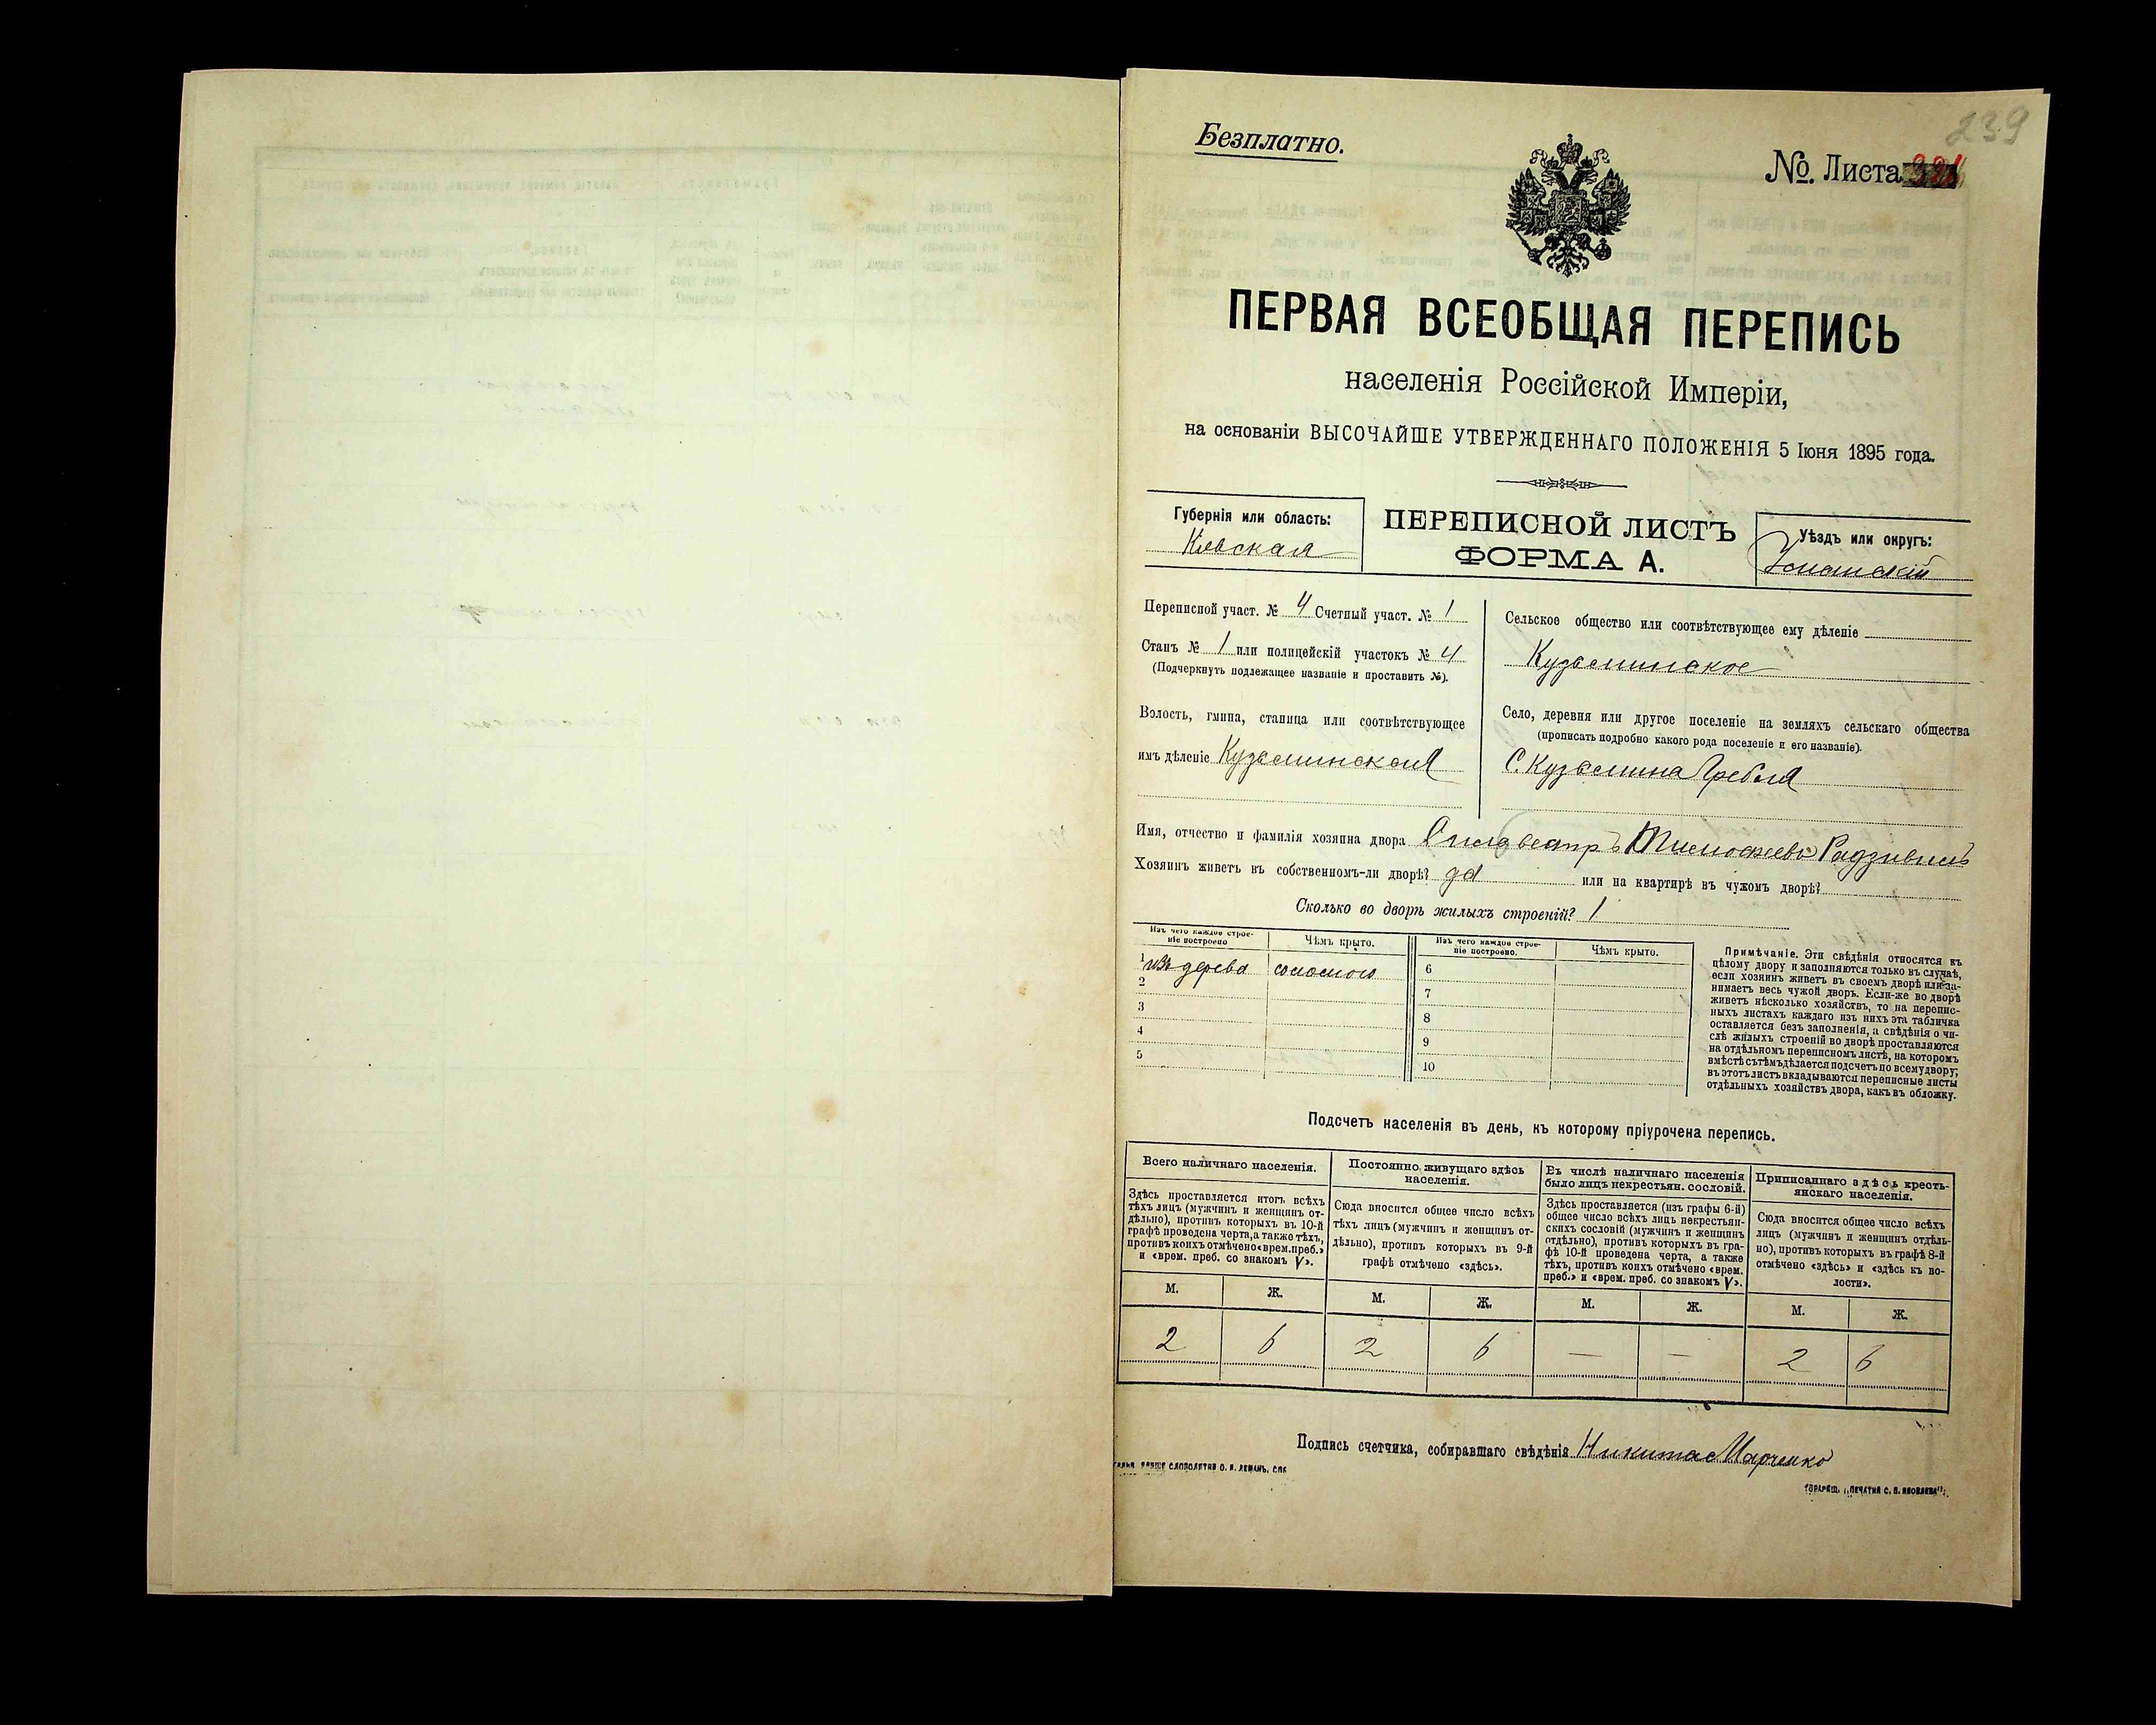 239
Безплатно.
№ Листа
ПЕРВАЯ ВСЕОБЩАЯ ПЕРЕПИСЬ
населенія Россійской Имперіи,
на основаніи ВЫСОЧАЙШЕ УТВЕРЖДЕННАГО ПОЛОЖЕНІЯ 5 Іюня 1895 года.
Губернія или область:
Кіевская
ПЕРЕПИСНОЙ ЛИСТЪ
ФОРМА А.
Уѣздъ или округъ:
Уманскій
Переписной участ. № 4 Счетный участ. № 1
Станъ № 1 или полицейскій участокъ № 4
(Подчеркнуть подлежащее названіе и проставить №).
Волость, гмина, станица или соотвѣтствующее
имъ дѣленіе Кузьминская
Сельское общество или соотвѣтствующее ему дѣленіе
Кузьминское
Село, деревня или другое поселеніе на земляхъ сельскаго общества
(прописать подробно какого рода поселеніе и его названіе).
С. Кузьмина Гребля
Имя, отчество и фамилія хозяина двора Тимофеевъ
Хозяинъ живетъ въ собственномъ-ли дворѣ? да или на квартирѣ въ чужомъ дворѣ?
Сколько во дворѣ жилыхъ строеній? 1
Изъ чего каждое строе-
ніе построено
Чѣмъ крыто.
1 изъ дерева соломою
2
3
4
5
Изъ чего каждое строе-
ніе построено.
Чѣмъ крыто.
6
7
8
9
10
Примѣчаніе. Эти свѣдѣнія относятся къ
цѣлому двору и заполняются только въ случаѣ,
если хозяинъ живетъ въ своемъ дворѣ или за-
нимаетъ весь чужой дворъ. Если-же во дворѣ
живетъ нѣсколько хозяйствъ, то на перепис-
ныхъ листахъ каждаго изъ нихъ эта табличка
оставляется безъ заполненія, а свѣдѣнія о чи-
слѣ жилыхъ строеній во дворѣ проставляются
на отдѣльномъ переписномъ листѣ, на которомъ
вмѣстѣ съ тѣмъ дѣлается подсчетъ по всему двору;
въ этотъ листъ вкладываются переписные листы
отдѣльныхъ хозяйствъ двора, какъ въ обложку.
Подсчетъ населенія въ день, къ которому пріурочена перепись.
Всего наличнаго населенія.
Здѣсь проставляется итогъ всѣхъ
тѣхъ лицъ (мужчинъ и женщинъ от-
дѣльно), противъ которыхъ въ 10-й
графѣ проведена черта, а также тѣхъ,
противъ коихъ отмѣчено «врем. преб.»
и «врем. преб. со знакомъ V».
М. Ж.
2 6
Постоянно живущаго здѣсь
населенія.
Сюда вносится общее число всѣхъ
тѣхъ лицъ (мужчинъ и женщинъ от-
дѣльно), противъ которыхъ въ 9-й
графѣ отмѣчено «здѣсь».
М. Ж.
2 6
Въ числѣ наличнаго населенія
было лицъ некрестьян. сословій.
Здѣсь проставляется (изъ графы 6-й)
общее число всѣхъ лицъ некрестьян-
скихъ сословій (мужчинъ и женщинъ
отдѣльно), противъ которыхъ въ гра-
фѣ 10-й проведена черта, а также
тѣхъ, противъ коихъ отмѣчено «врем.
преб.» и «врем. преб. со знакомъ V».
М. Ж.
— —
Приписаннаго здѣсь кресть-
янскаго населенія.
Сюда вносится общее число всѣхъ
лицъ (мужчинъ и женщинъ отдѣль-
но), противъ которыхъ въ графѣ 8-й
отмѣчено «здѣсь» и «здѣсь къ во-
лости».
М. Ж.
2 6
Подпись счетчика, собиравшаго свѣдѣнія Никита Марченко